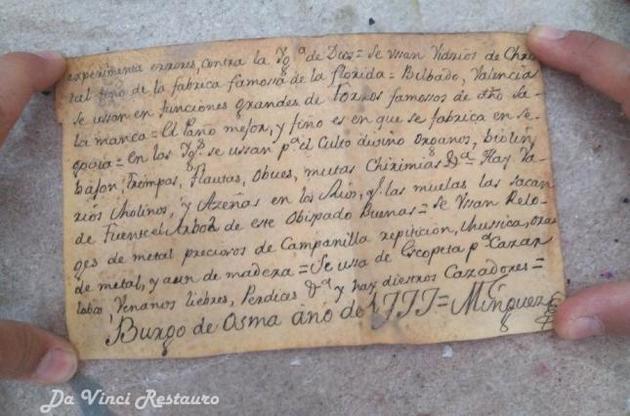 experimenta errores, contra la Yg.ª de Dios = Se ussan Vidrios de Chris
tal fino de la fabrica famossa de la florida = Bilbado, Valencia
se ussan en funciones grandes de toros famosos de año Sa-
lamanca = El Pano mejor, y fino es en que se fabrica en se-
govia = en las Yg.s se ussan p.ª el Culto divino Organos, biolin
bajon, Trompas, flautas, Obues, musetas Chirimias &.ª = Hay Va-
rios Molinos, y Azeñas en los Rios, y las muelas las sacan
de Fuentcelarbol de este Obispado Buenas = Se Ussan Relo-
ges de metal preciosos de Campanilla repiticion, Mussica,
de metal, y aun de madera = Se usa de Escopeta p.ª Cazar
lobos, Venados liebres, Perdices &.ª y hay diestros Cazadores =
Burgo de Osma año de 1777 = Mińguez
Da Vinci Restauro